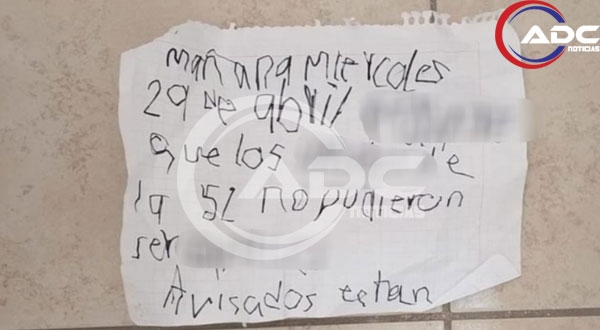 ADC
NOTICIAS
mañana miercoles
29 de abril
que los
la 52 no pudieron
ser
Avisados estan
ADC
NOTICIAS